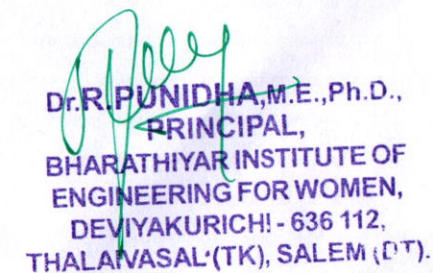 Dr.R.PUNIDHA,M.E.,Ph.D.,
PRINCIPAL,
BHARATHIYAR INSTITUTE OF
ENGINEERING FOR WOMEN,
DEVIYAKURICHI - 636 112,
THALAIVASAL (TK), SALEM (DT).